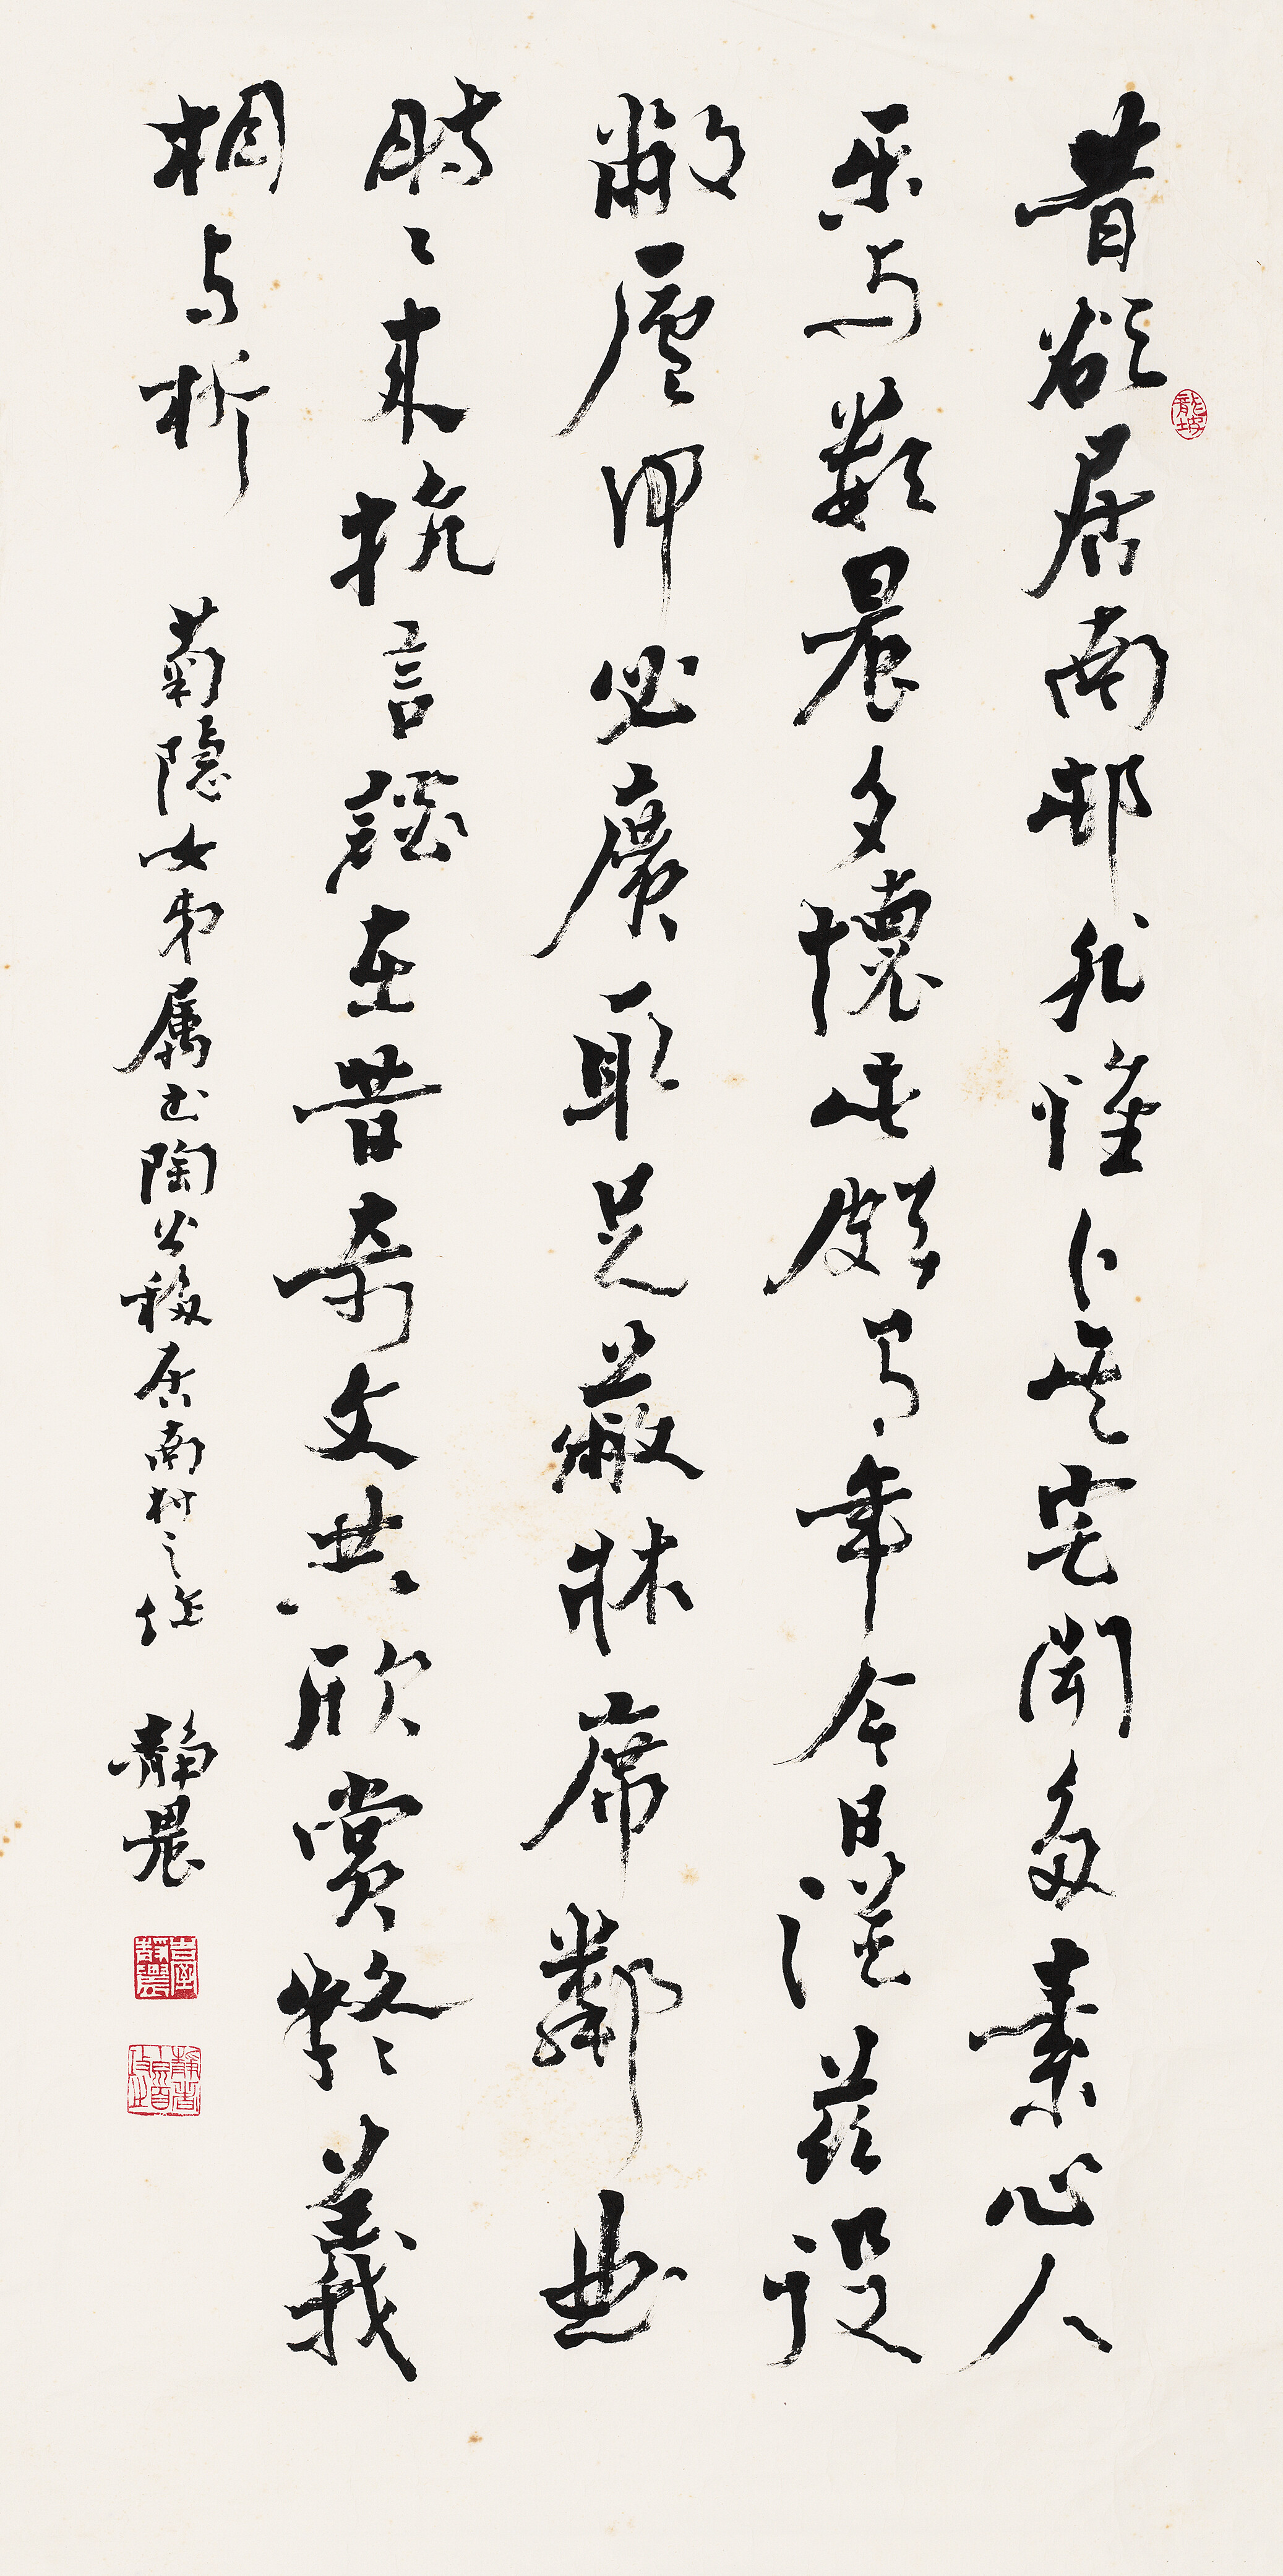 昔欲居南邨非惟卜其宅聞多素心人
樂與數晨夕懷此頗有年今日從茲設
敝廬何必廣取足蔽牀席鄰曲
時々來抗言談在昔奇文共欣賞疑義
相與析 菊隱女弟屬書陶公移居南村之作 靜農
龍坡
臺靜農